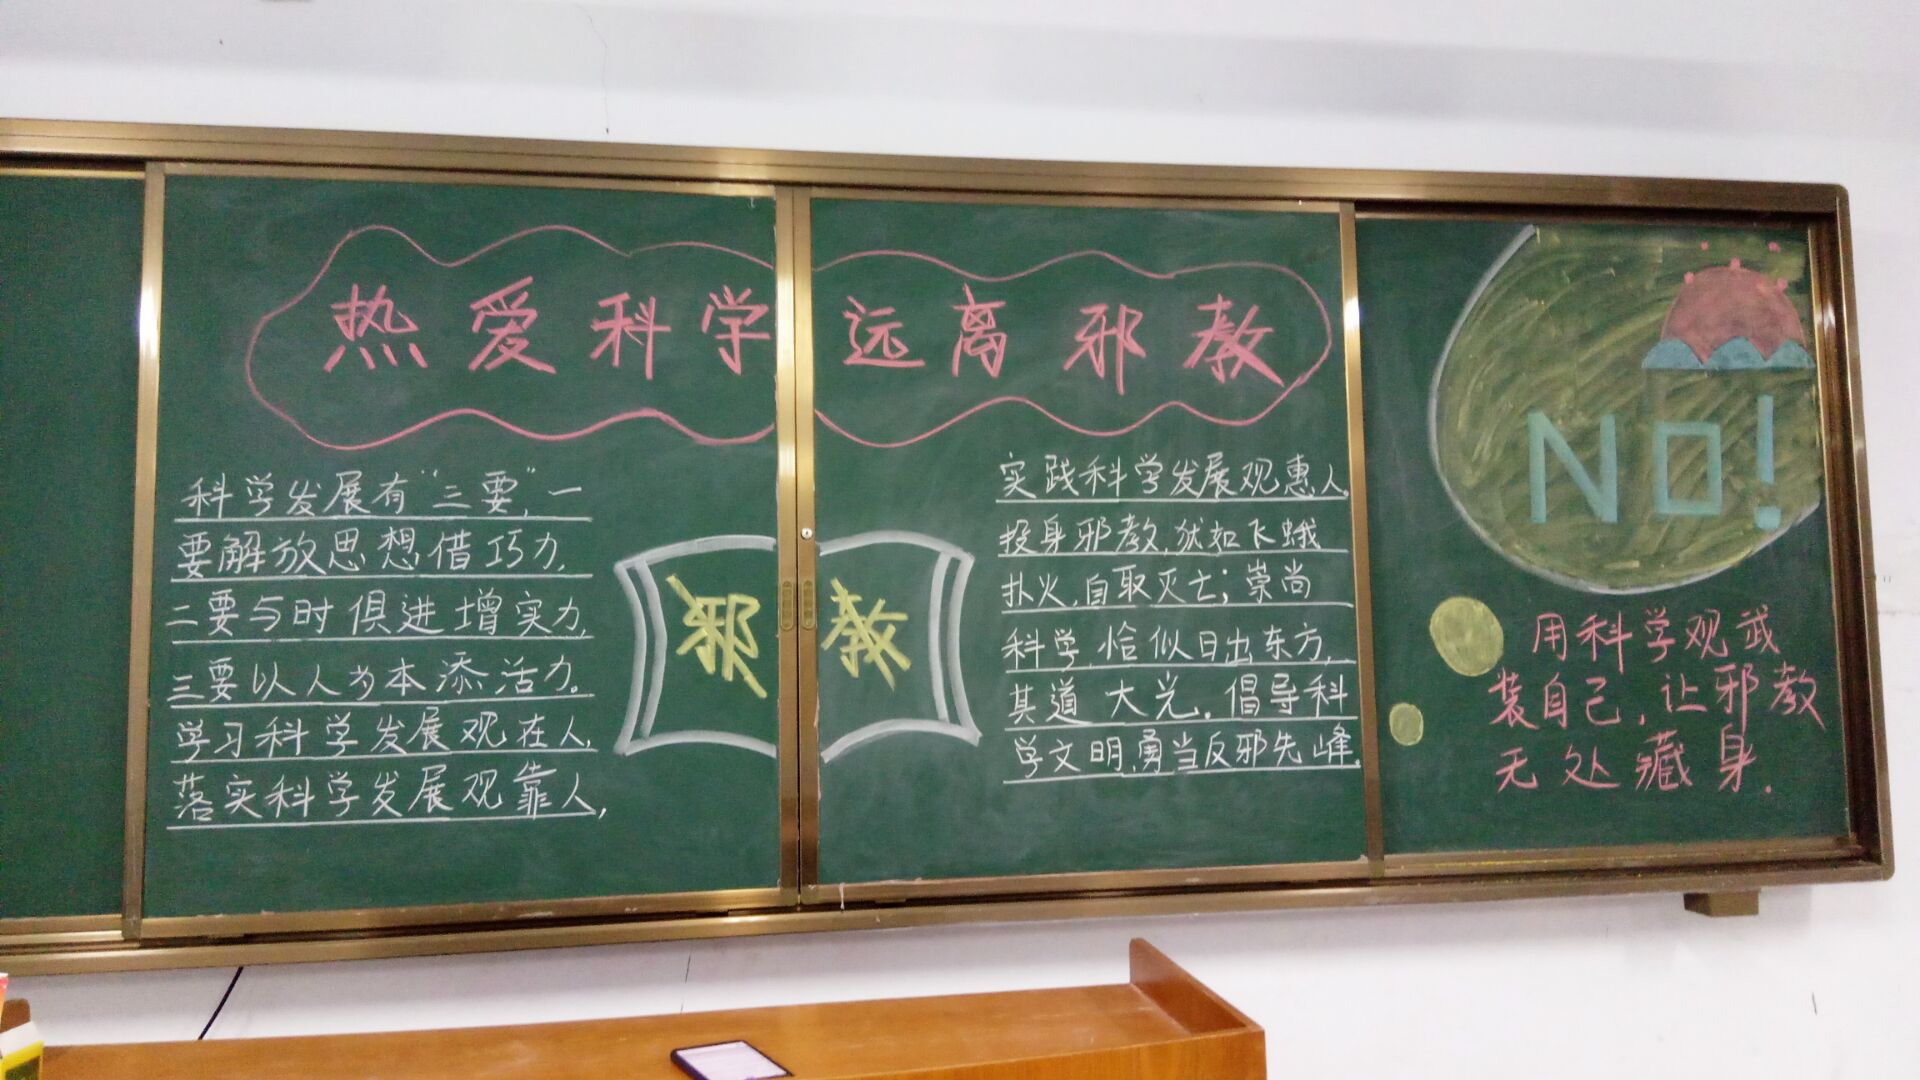 热爱科学远离邪教
科学发展有“三要”，一
要解放思想借巧力，
二要与时俱进增实力，
三要以人为本添活力。
学习科学发展观在人，
落实科学发展观靠人，
邪教
实践科学发展观惠人。
投身邪教，犹如飞蛾
扑火，自取灭亡；崇尚
科学，恰似日出东方，
其道大光。倡导科
学文明，勇当反邪先峰。
NO！
用科学观武
装自己，让邪教
无处藏身.